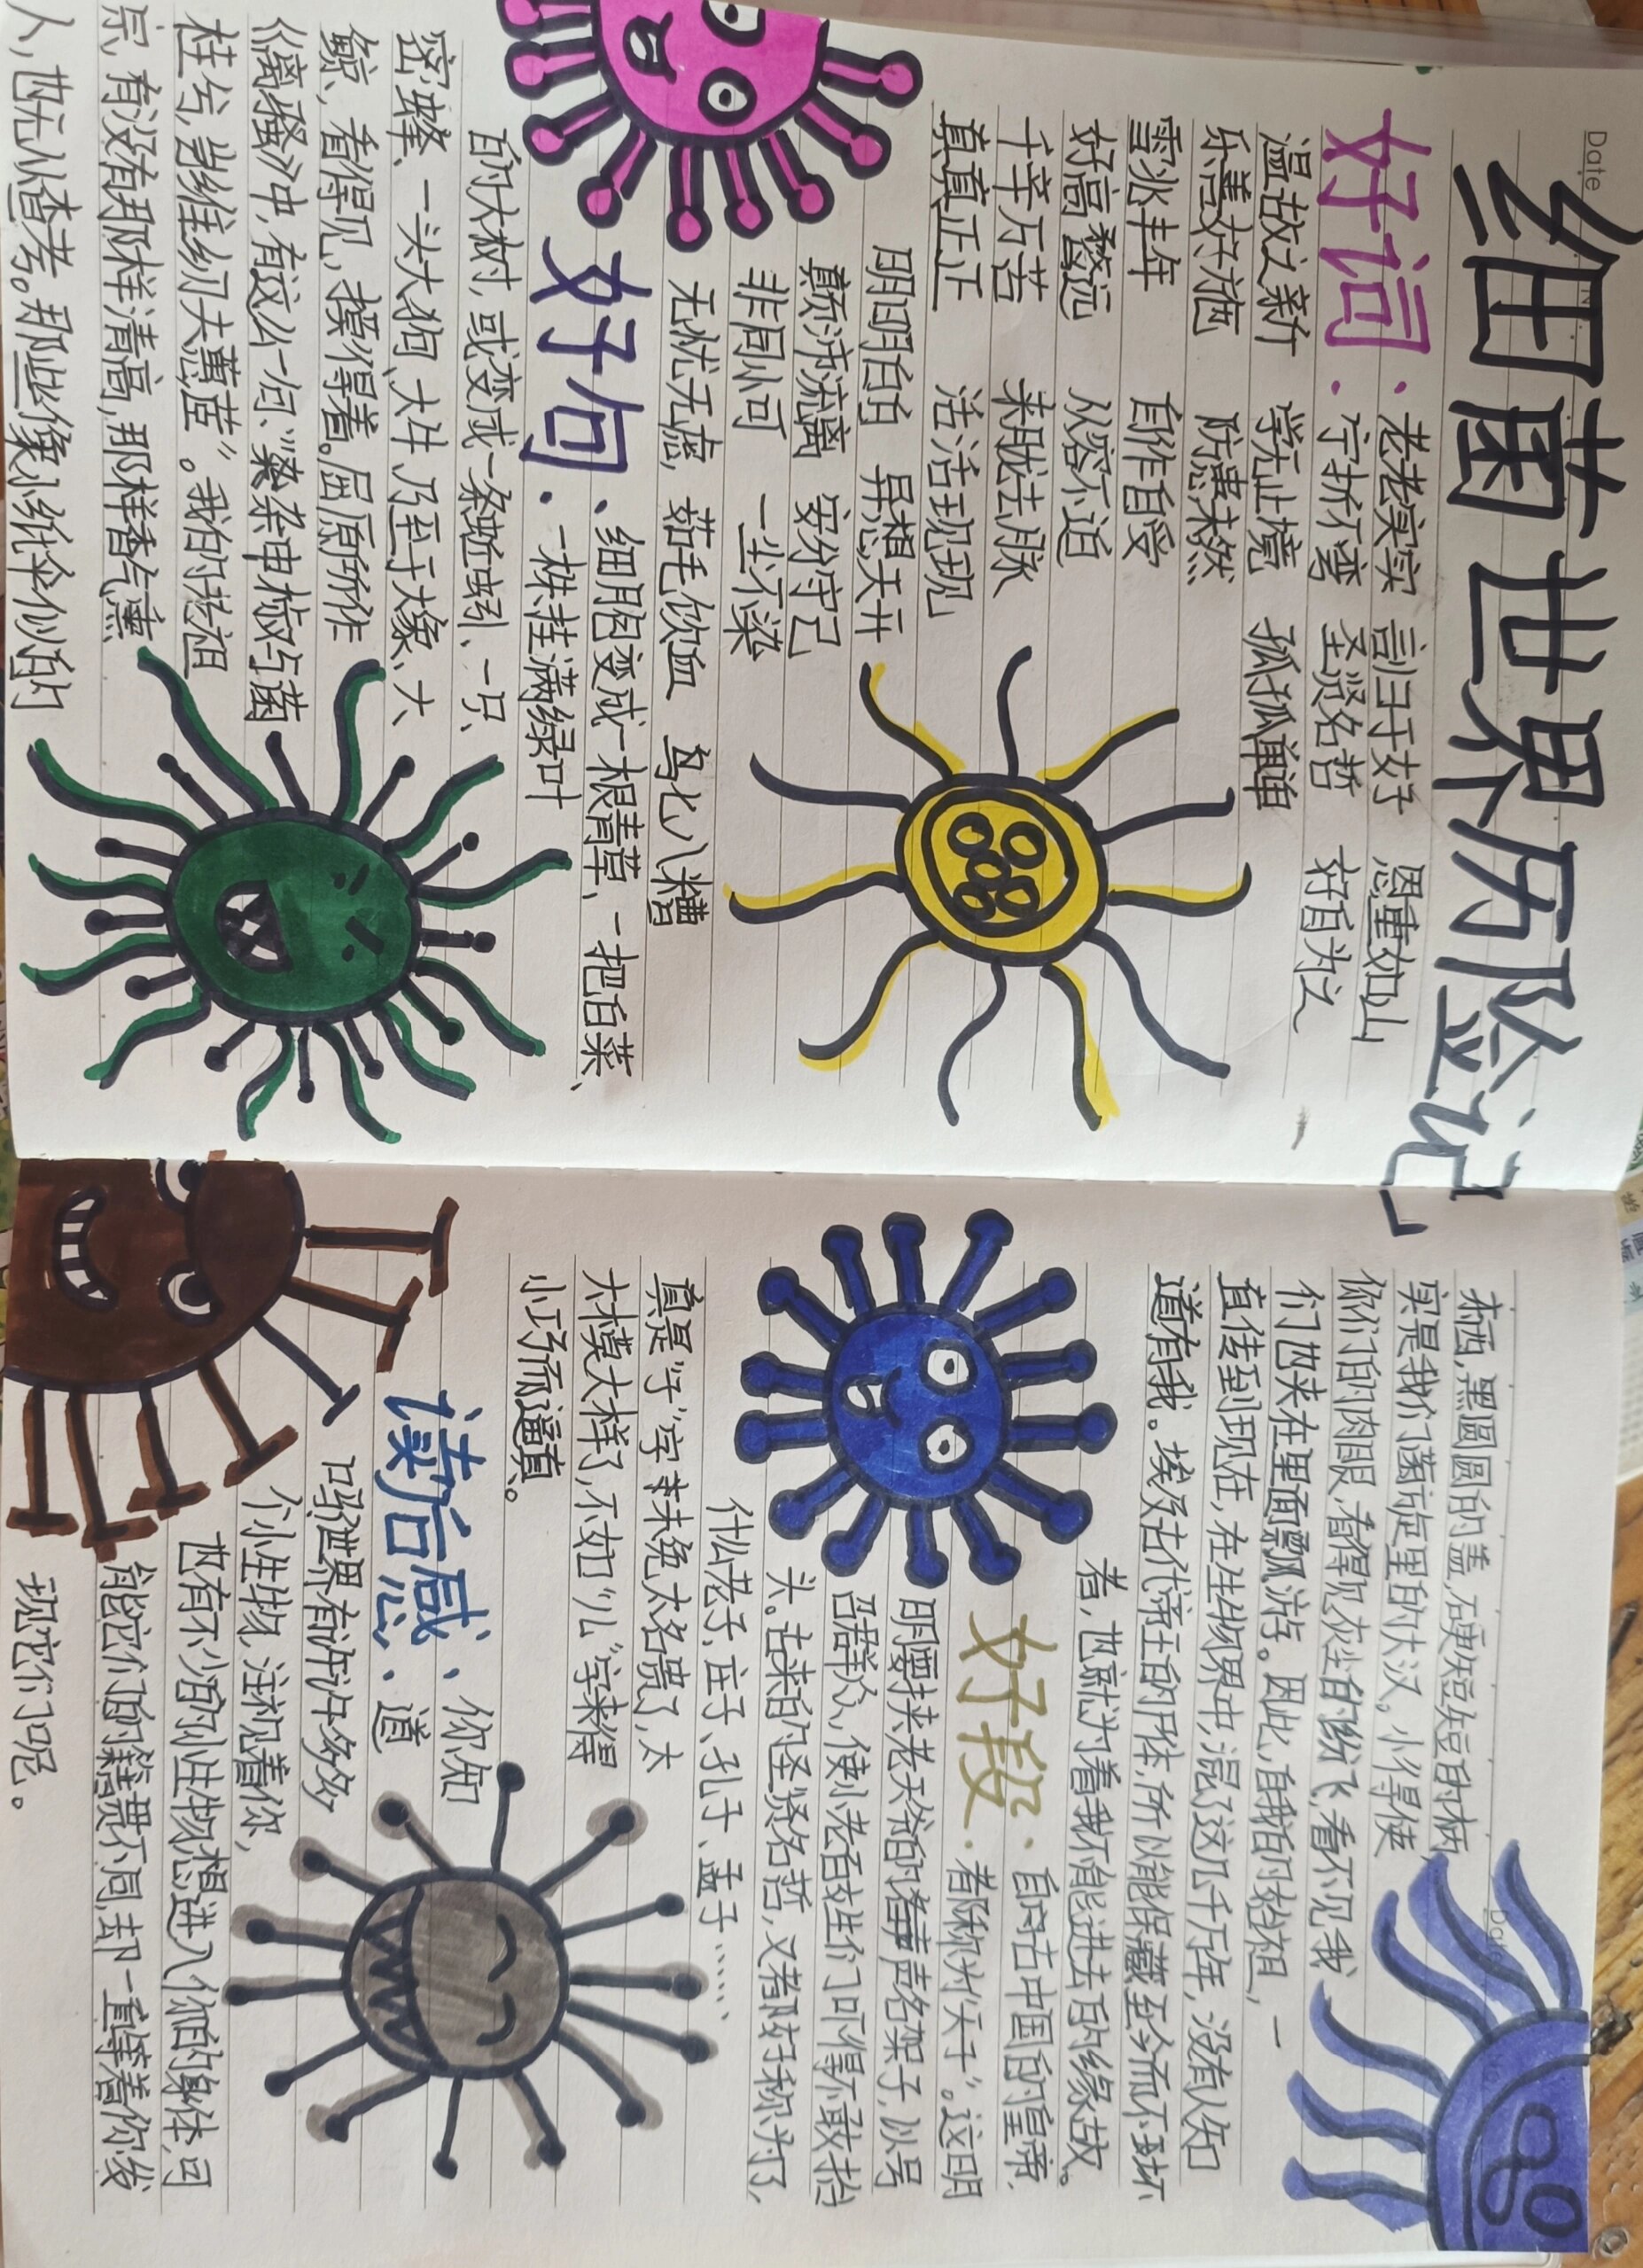 Date
细菌世界历险记
好词：老老实实 言归于好 恩重如山
宁折不弯 圣贤名哲 好自为之
温故之新 学无止境 孤孤单单
乐善好施 防患未然
雪兆丰年 自作自受
好高骛远 从容不迫
千辛万苦 来胧去脉
真真正正 活活现现
明明白白 异想天开
颠沛流离 安分守己
非同小可 一尘不染
无忧无虑 茹毛饮血 乌七八糟
好句：细胞变成一根青草，一把白菜、
一株挂满绿叶
的大树，或变成一条蚯蚓、一只
密蜂、一头大狗、大牛乃至于大象、大
鲸，看得见，摸得着。屈原所作
《离骚》中，有这么一句：“杂申椒与菌
桂兮，岂维纫夫蕙茝”。我的老祖
宗，有没有那样清高，那样香气熏
人，也无从查考。那些像小纸伞似的
Date
东西，黑圆圆的盖，硬短短的柄，
实是我们菌族里的大汉。小得使
你们的肉眼，看得见灰尘的纷飞，看不见我
们也来在里面飘游。因此，自我的始祖，一
直传到现在，在生物界中，混了这几千万年，没有人知
道有我。埃及古代帝王的尸体，所以能保藏至今而不坏
者，也就为着我不能进去的缘故。
好段：自称古中国的皇帝，
都称为“天子”。这明
明要挟老天爷的声名架子，以号
召群众，使小老百姓们吓得不敢抬
头。古来的圣贤名哲，又都好称为子，
什么老子、庄子、孔子、孟子……，
真是“子”字未免太名贵了，太
大模大样了，不如“儿”字来得
小巧而逼真。
读后感：你知
道
吗？世界有许许多多
个小生物，注视着你，
也有不少的小生物想进入你的身体，可
能它们的籍贯不同，却一直等着你发
现它们呢。